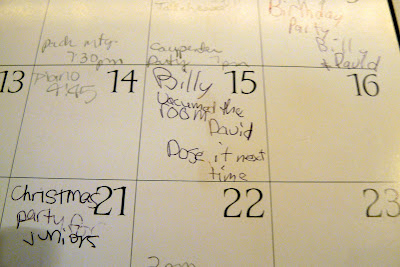 Birthday
Party
Billy
+ David
pack mtg
7:30pm
Carpenter
Party 7pm
13
piano
4:45
14
Billy
15
vacumed the
room
David
Dose it next
time
16
Christmas
party
juniors
21
22
23